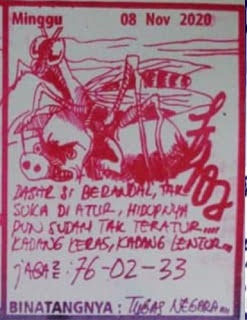 Minggu 08 Nov 2020
DASAR SI BERANDAL, TAK
SUKA DI ATUR, HIDUPNYA
PUN SUDAH TAK TERATUR....
KADANG KERAS, KADANG LENTUR...
JAGA2 : 76-02-33
BINATANGNYA : TUGAS NEGARA...